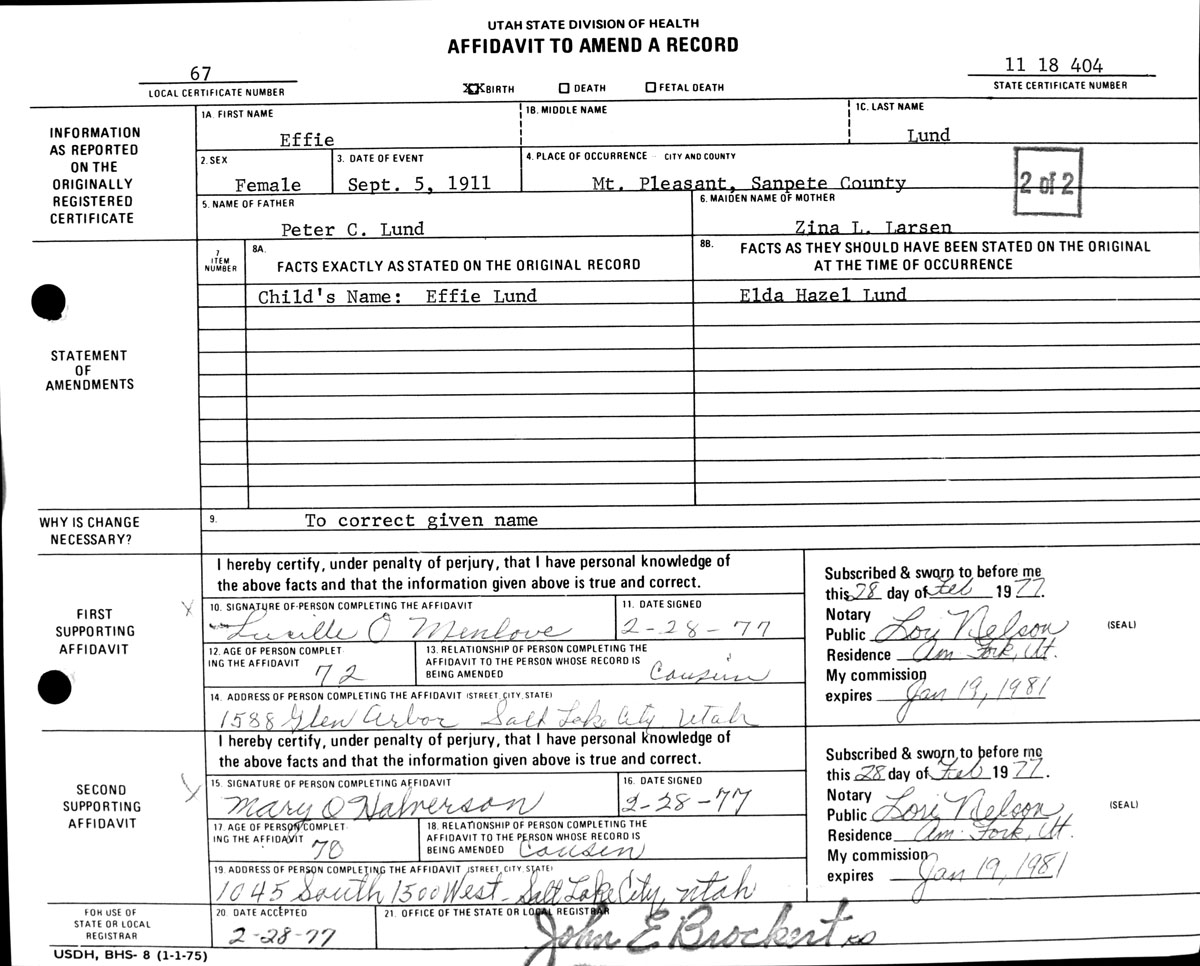 UTAH STATE DIVISION OF HEALTH
AFFIDAVIT TO AMEND A RECORD
67
LOCAL CERTIFICATE NUMBER
XX BIRTH ☐ DEATH ☐ FETAL DEATH
11 18 404
STATE CERTIFICATE NUMBER
INFORMATION
AS REPORTED
ON THE
ORIGINALLY
REGISTERED
CERTIFICATE
1A. FIRST NAME
Effie
1B. MIDDLE NAME
1C. LAST NAME
Lund
2. SEX
Female
3. DATE OF EVENT
Sept. 5, 1911
4. PLACE OF OCCURRENCE - CITY AND COUNTY
Mt. Pleasant, Sanpete County
2 of 2
5. NAME OF FATHER
Peter C. Lund
6. MAIDEN NAME OF MOTHER
Zina L. Larsen
STATEMENT
OF
AMENDMENTS
7
ITEM
NUMBER
8A.
FACTS EXACTLY AS STATED ON THE ORIGINAL RECORD
8B. FACTS AS THEY SHOULD HAVE BEEN STATED ON THE ORIGINAL
AT THE TIME OF OCCURRENCE
Child's Name: Effie Lund
Elda Hazel Lund
WHY IS CHANGE
NECESSARY?
9. To correct given name
FIRST
SUPPORTING
AFFIDAVIT
X
I hereby certify, under penalty of perjury, that I have personal knowledge of
the above facts and that the information given above is true and correct.
10. SIGNATURE OF PERSON COMPLETING THE AFFIDAVIT
Lucille O Menlove
11. DATE SIGNED
2-28-77
12. AGE OF PERSON COMPLET-
ING THE AFFIDAVIT 72
13. RELATIONSHIP OF PERSON COMPLETING THE
AFFIDAVIT TO THE PERSON WHOSE RECORD IS
BEING AMENDED Cousin
14. ADDRESS OF PERSON COMPLETING THE AFFIDAVIT (STREET, CITY, STATE)
1588 Glen Arbor Salt Lake City, Utah
Subscribed & sworn to before me
this 28 day of Feb 1977.
Notary
Public Lori Nelson
(SEAL)
Residence Am. Fork, Ut.
My commission
expires Jan 19, 1981
SECOND
SUPPORTING
AFFIDAVIT
X
I hereby certify, under penalty of perjury, that I have personal knowledge of
the above facts and that the information given above is true and correct.
15. SIGNATURE OF PERSON COMPLETING AFFIDAVIT
Mary O Halverson
16. DATE SIGNED
2-28-77
17. AGE OF PERSON COMPLET-
ING THE AFFIDAVIT 70
18. RELATIONSHIP OF PERSON COMPLETING THE
AFFIDAVIT TO THE PERSON WHOSE RECORD IS
BEING AMENDED Cousin
19. ADDRESS OF PERSON COMPLETING THE AFFIDAVIT (STREET, CITY, STATE)
1045 South 1500 West - Salt Lake City, Utah
Subscribed & sworn to before me
this 28 day of Feb 1977.
Notary
Public Lori Nelson
(SEAL)
Residence Am. Fork, Ut.
My commission
expires Jan 19, 1981
FOR USE OF
STATE OR LOCAL
REGISTRAR
20. DATE ACCEPTED
2-28-77
21. OFFICE OF THE STATE OR LOCAL REGISTRAR
John E Brockert
USDH, BHS- 8 (1-1-75)